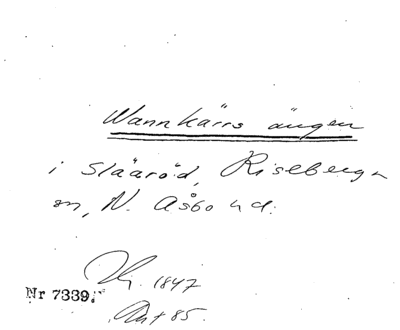 Wannkärrs ängen
i Slääröd, Riseberga
sn, N. Åsbo hd.
1847
Nr 7339.
Akt 85.